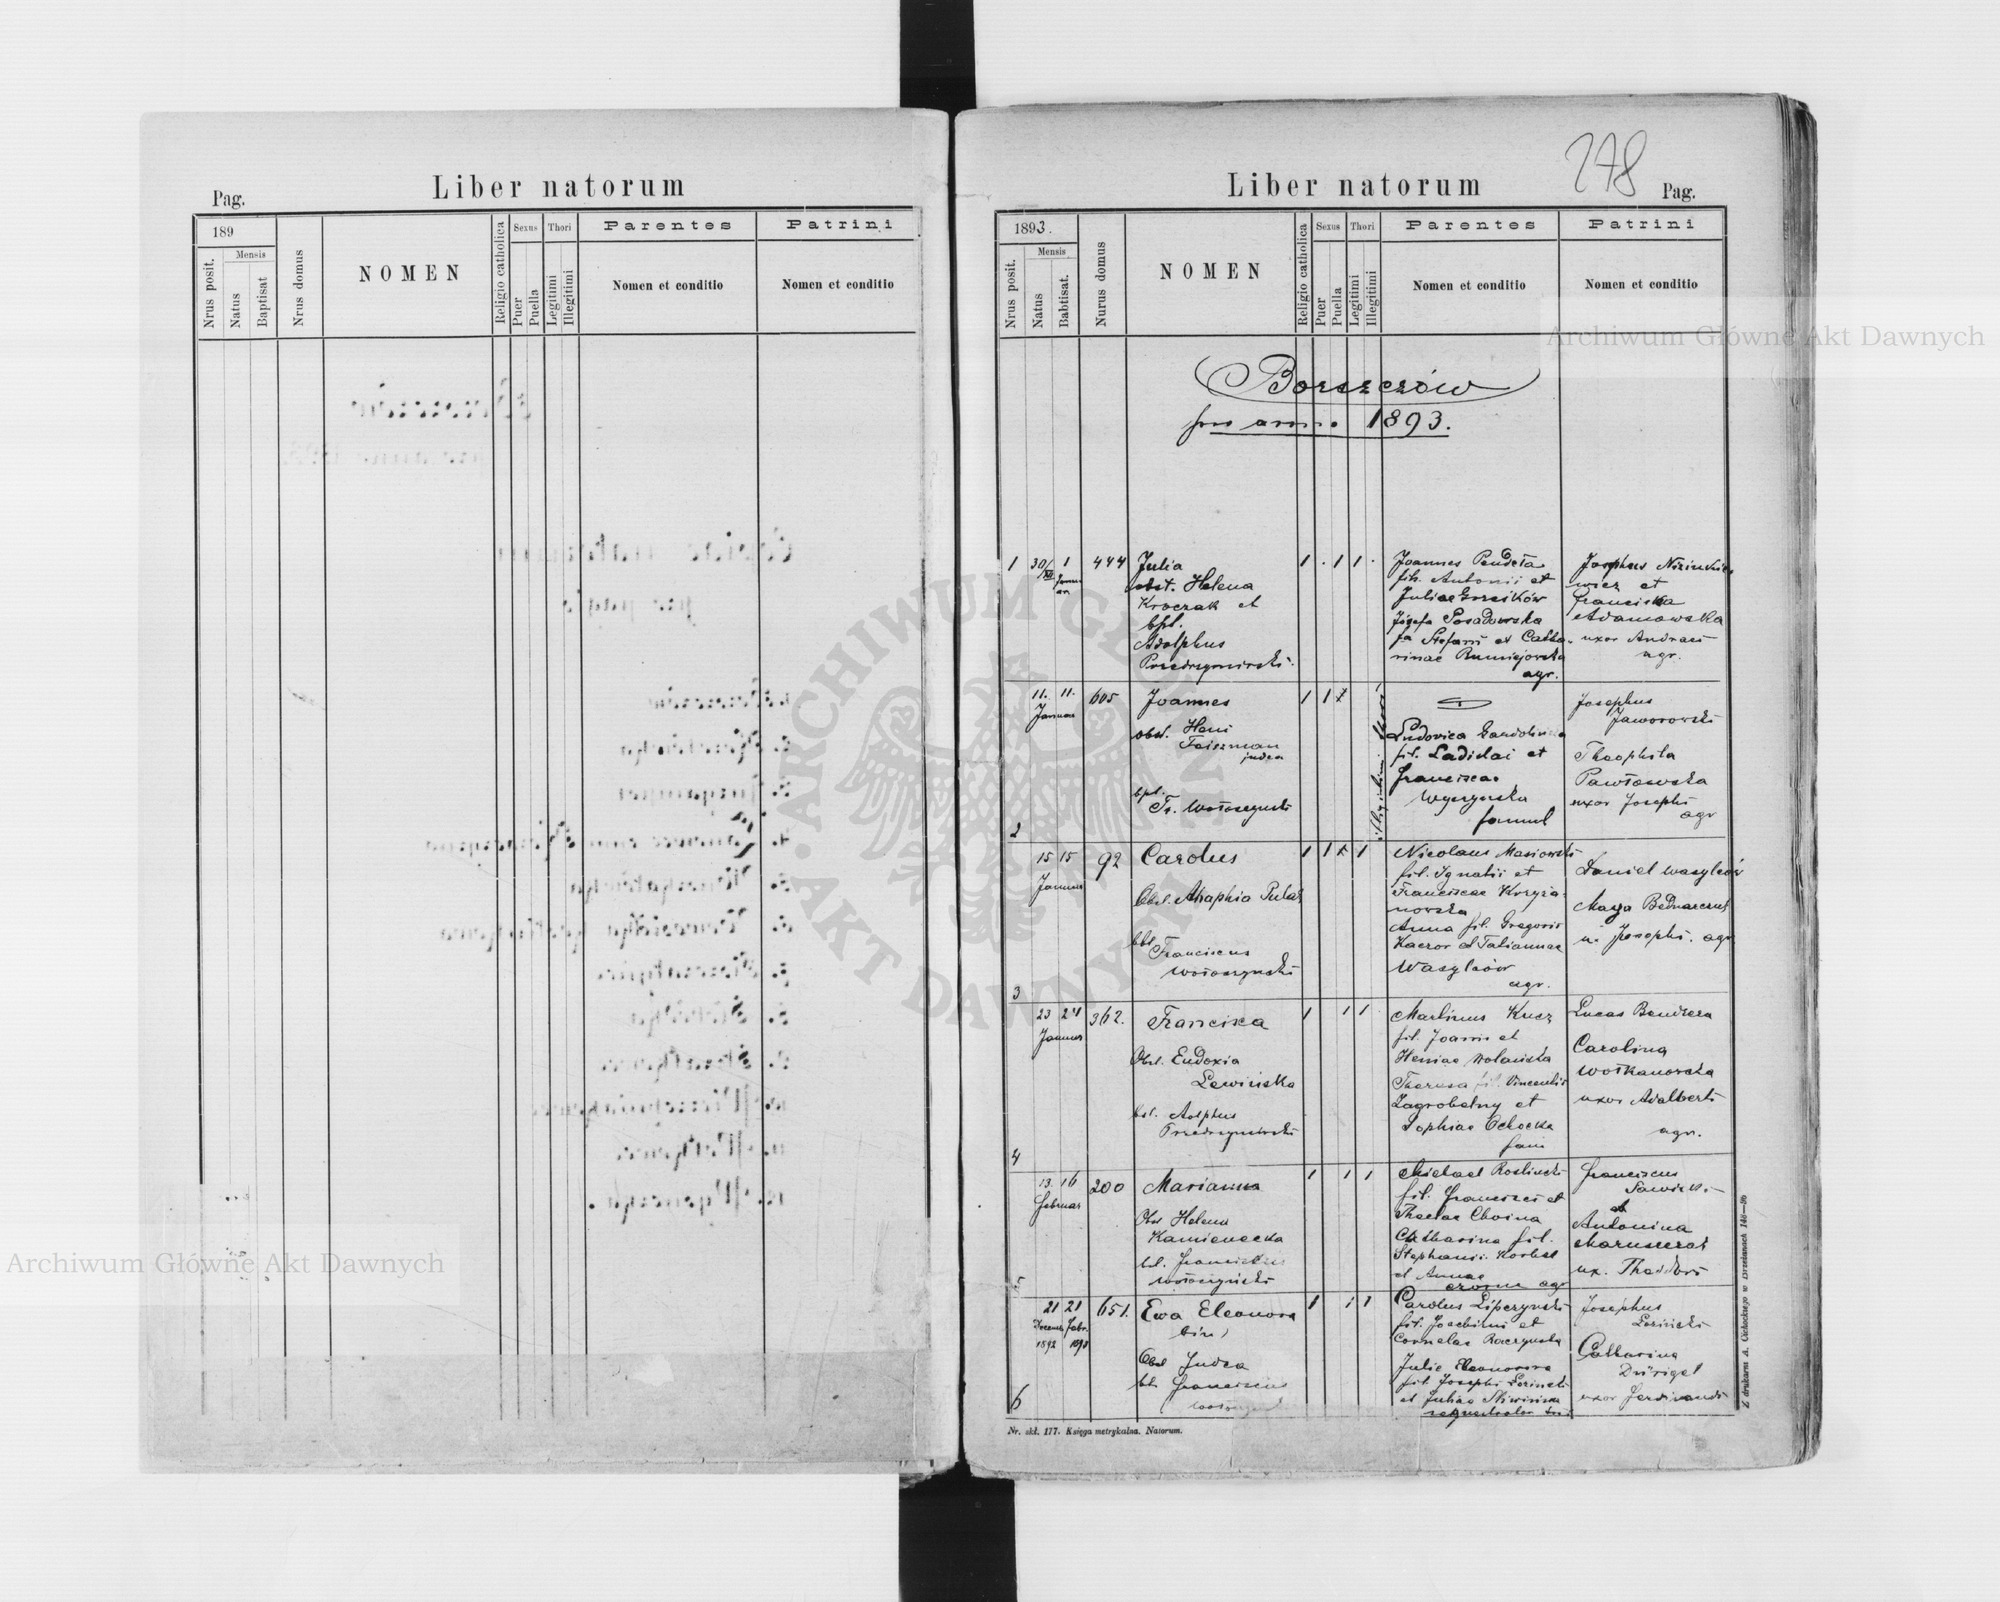 Pag.
Liber natorum
189
Mensis
Nrus posit.
Natus
Baptisat
Nrus domus
NOMEN
Religio catholica
Sexus
Puer
Puella
Thori
Legitimi
Illegitimi
Parentes
Nomen et conditio
Patrini
Nomen et conditio
278
Liber natorum
Pag.
1893.
Mensis
Nrus posit.
Natus
Babtisat.
Nurus domus
NOMEN
Religio catholica
Sexus
Puer
Puella
Thori
Legitimi
Illegitimi
Parentes
Nomen et conditio
Patrini
Nomen et conditio
Borszczów
pro anno 1893.
1 30/XII 1 444
Julia
obst. Helena
Kroczak et
bpt.
Adolphus
Przedrzymirski
1 . 1 1 .
Joannes Pendeta
fil. Antonii et
Juliae
Józefa Posadowska
fa Stefani et Catha-
rinae
agr.
Josephus
wicz et
Francisca
Adamowska
uxor Andreae
agr.
2
11. 11.
Januar
605
Joannes
obst. Hani
Feiszman
judea
bpt.
Fr. Wołoszynski
1 1
illegitimi thori
Ludovica
fil. Ladislai et
Franciscae
Wyszynska
famul
Josephus
Jaworowski
Theophila
Pawłowska
uxor Josephi
agr
3
15 15
Januar
92
Carolus
Obst. Ahaphia
bpt
Franciscus
Wołoszynski
1 1 1
Nicolaus Masiowski
fil. Ignatii et
Franciscae Krzyża-
nowska
Anna fil. Gregorii
Kaczor et Tatiannae
Wasylców
agr.
Daniel Wasylców
Marya Bednarczuk
u. Josephi. agr
4
23 24
Januar
362.
Francisca
Obst. Eudoxia
Lewińska
bt. Adolphus
Przedrzymirski
1 1 1
Martinus Kucz
fil. Joannis et
Wolanska
Theresa fil. Vincentii
Zagrobelny et
Sophiae Ochocka
fam
Lucas Bendera
Carolina
Wołkanowska
uxor Adalberti
agr.
5
13. 16
Februar
200
Marianna
Obst Helena
Kamienecka
bt. Franciscus
Wołoszyński
1 1 1
Michael Roslinski
fil. Francisci et
Theclae Choina
Catharina fil.
Stephani Korbal
et Annae
agr
Franciscus
Sawicki
et
Antonina
ux. Thaddei
6
21 21
Decemb Febr.
1892 1893
651.
Ewa Eleonora
bin)
Obst Judea
bt. Franciscus
1 1 1
Carolus Lipczynski
fil. Joachimi et
Corneliae Raczynska
Julia Eleonora
fil Josephi Lozinski
et Juliae
Josephus
Loziński
Catharina
uxor Ferdinandi
Nr. skł. 177. Księga metrykalna. Natorum.
Z drukarni A. Cichockiego w Brzeżanach 146—96
Archiwum Główne Akt Dawnych
Archiwum Główne Akt Dawnych
ARCHIWUM GŁÓWNE AKT DAWNYCH